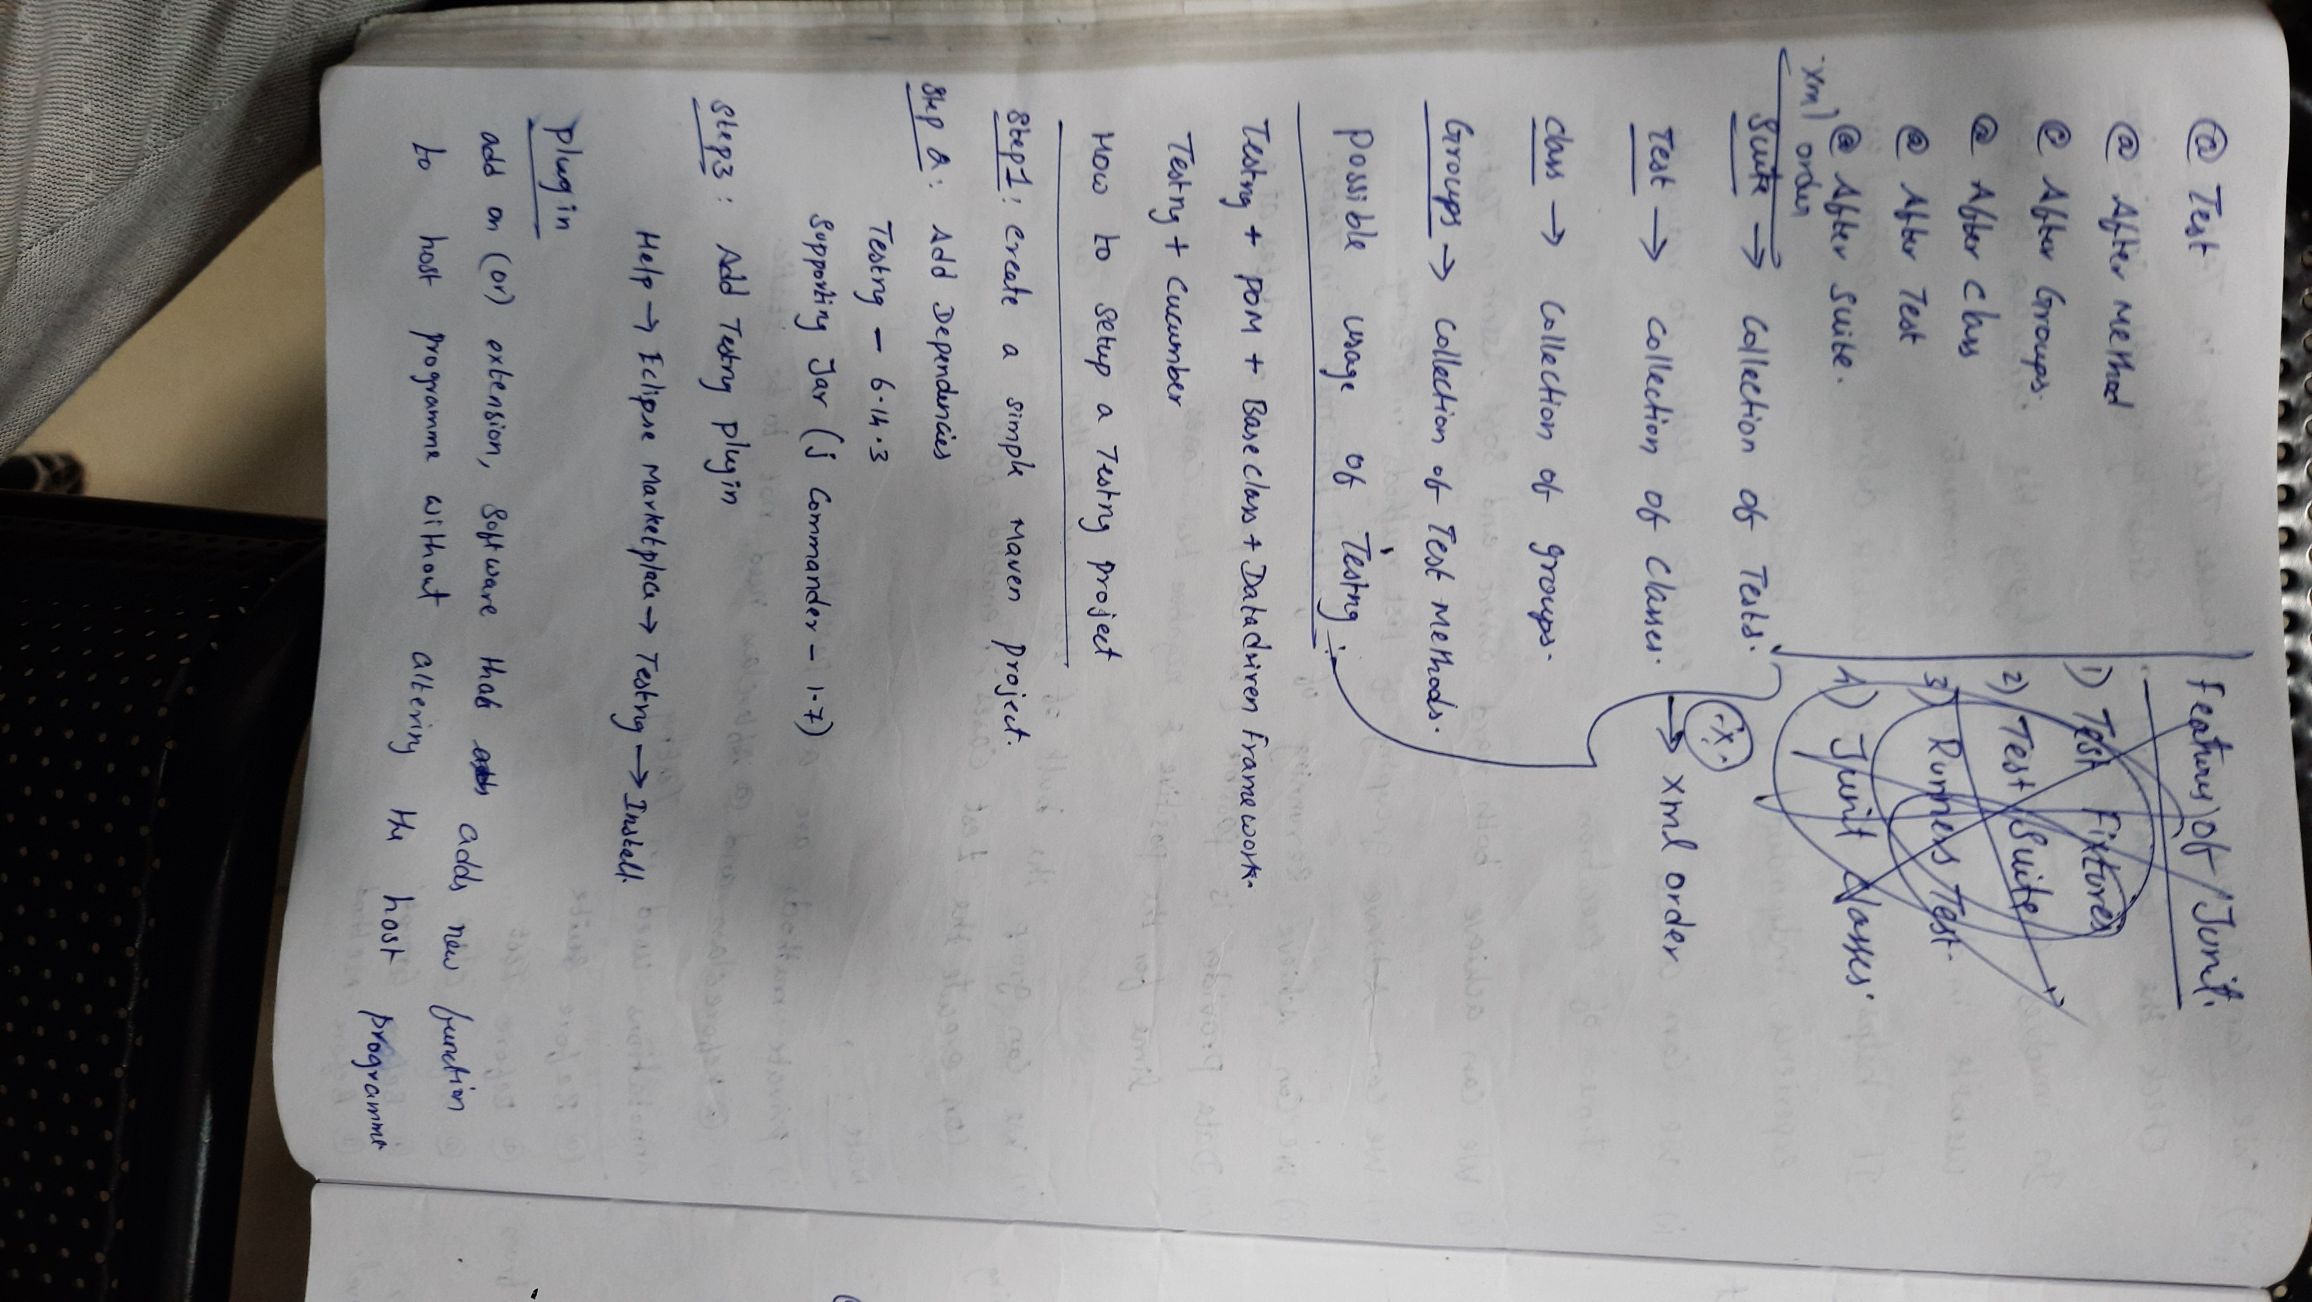 @ Test
@ After Method
@ After Groups.
@ After Class
@ After Test
@ After Suite.
Features of Junit.
1) Test Fixtures
2) Test Suite
3) Runners Test.
4) Junit Classes.
xml order
Suite → Collection of Tests.
Test → Collection of Classes.
→ xml order
Class → Collection of groups.
Groups → Collection of Test methods.
Possible usage of Testng :-
Testng + POM + Base class + Datadriven framework.
Testng + Cucumber
How to setup a Testng project
Step 1 : Create a simple Maven project.
Step 2 : Add Dependencies
Testng - 6.14.3
Supporting Jar (j Commander - 1.7)
Step 3 : Add Testng plugin
Help → Eclipse Marketplace → Testng → Install.
Plugin
add on (or) extension, Software that adds new function
to host programme without altering the host programme